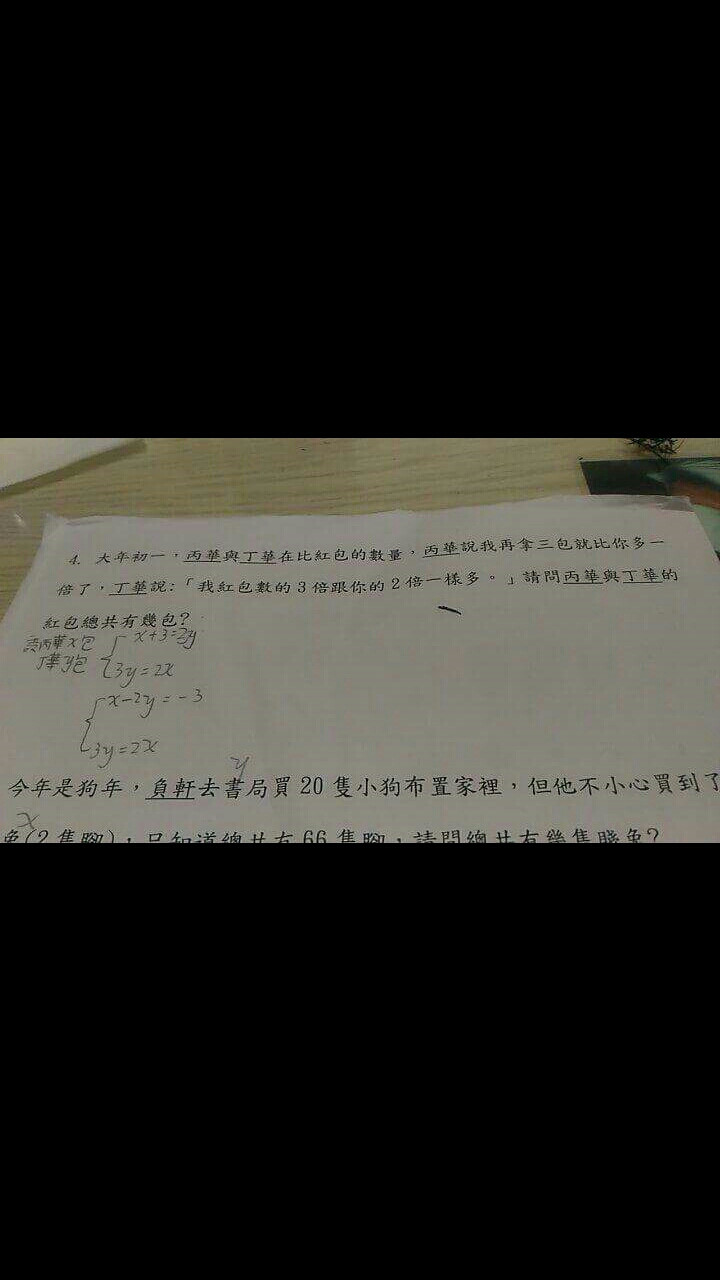 4. 大年初一，丙華與丁華在比紅包的數量，丙華說我再拿三包就比你多一
倍了，丁華說:「我紅包數的3倍跟你的2倍一樣多。」請問丙華與丁華的
紅包總共有幾包?
設丙華x包
丁華y包
x+3=2y
3y=2x
x-2y=-3
3y=2x
y
今年是狗年，負軒去書局買20隻小狗布置家裡，但他不小心買到了
x
兔(2隻腳)，只知道總共有66隻腳，請問總共有幾隻賤兔?